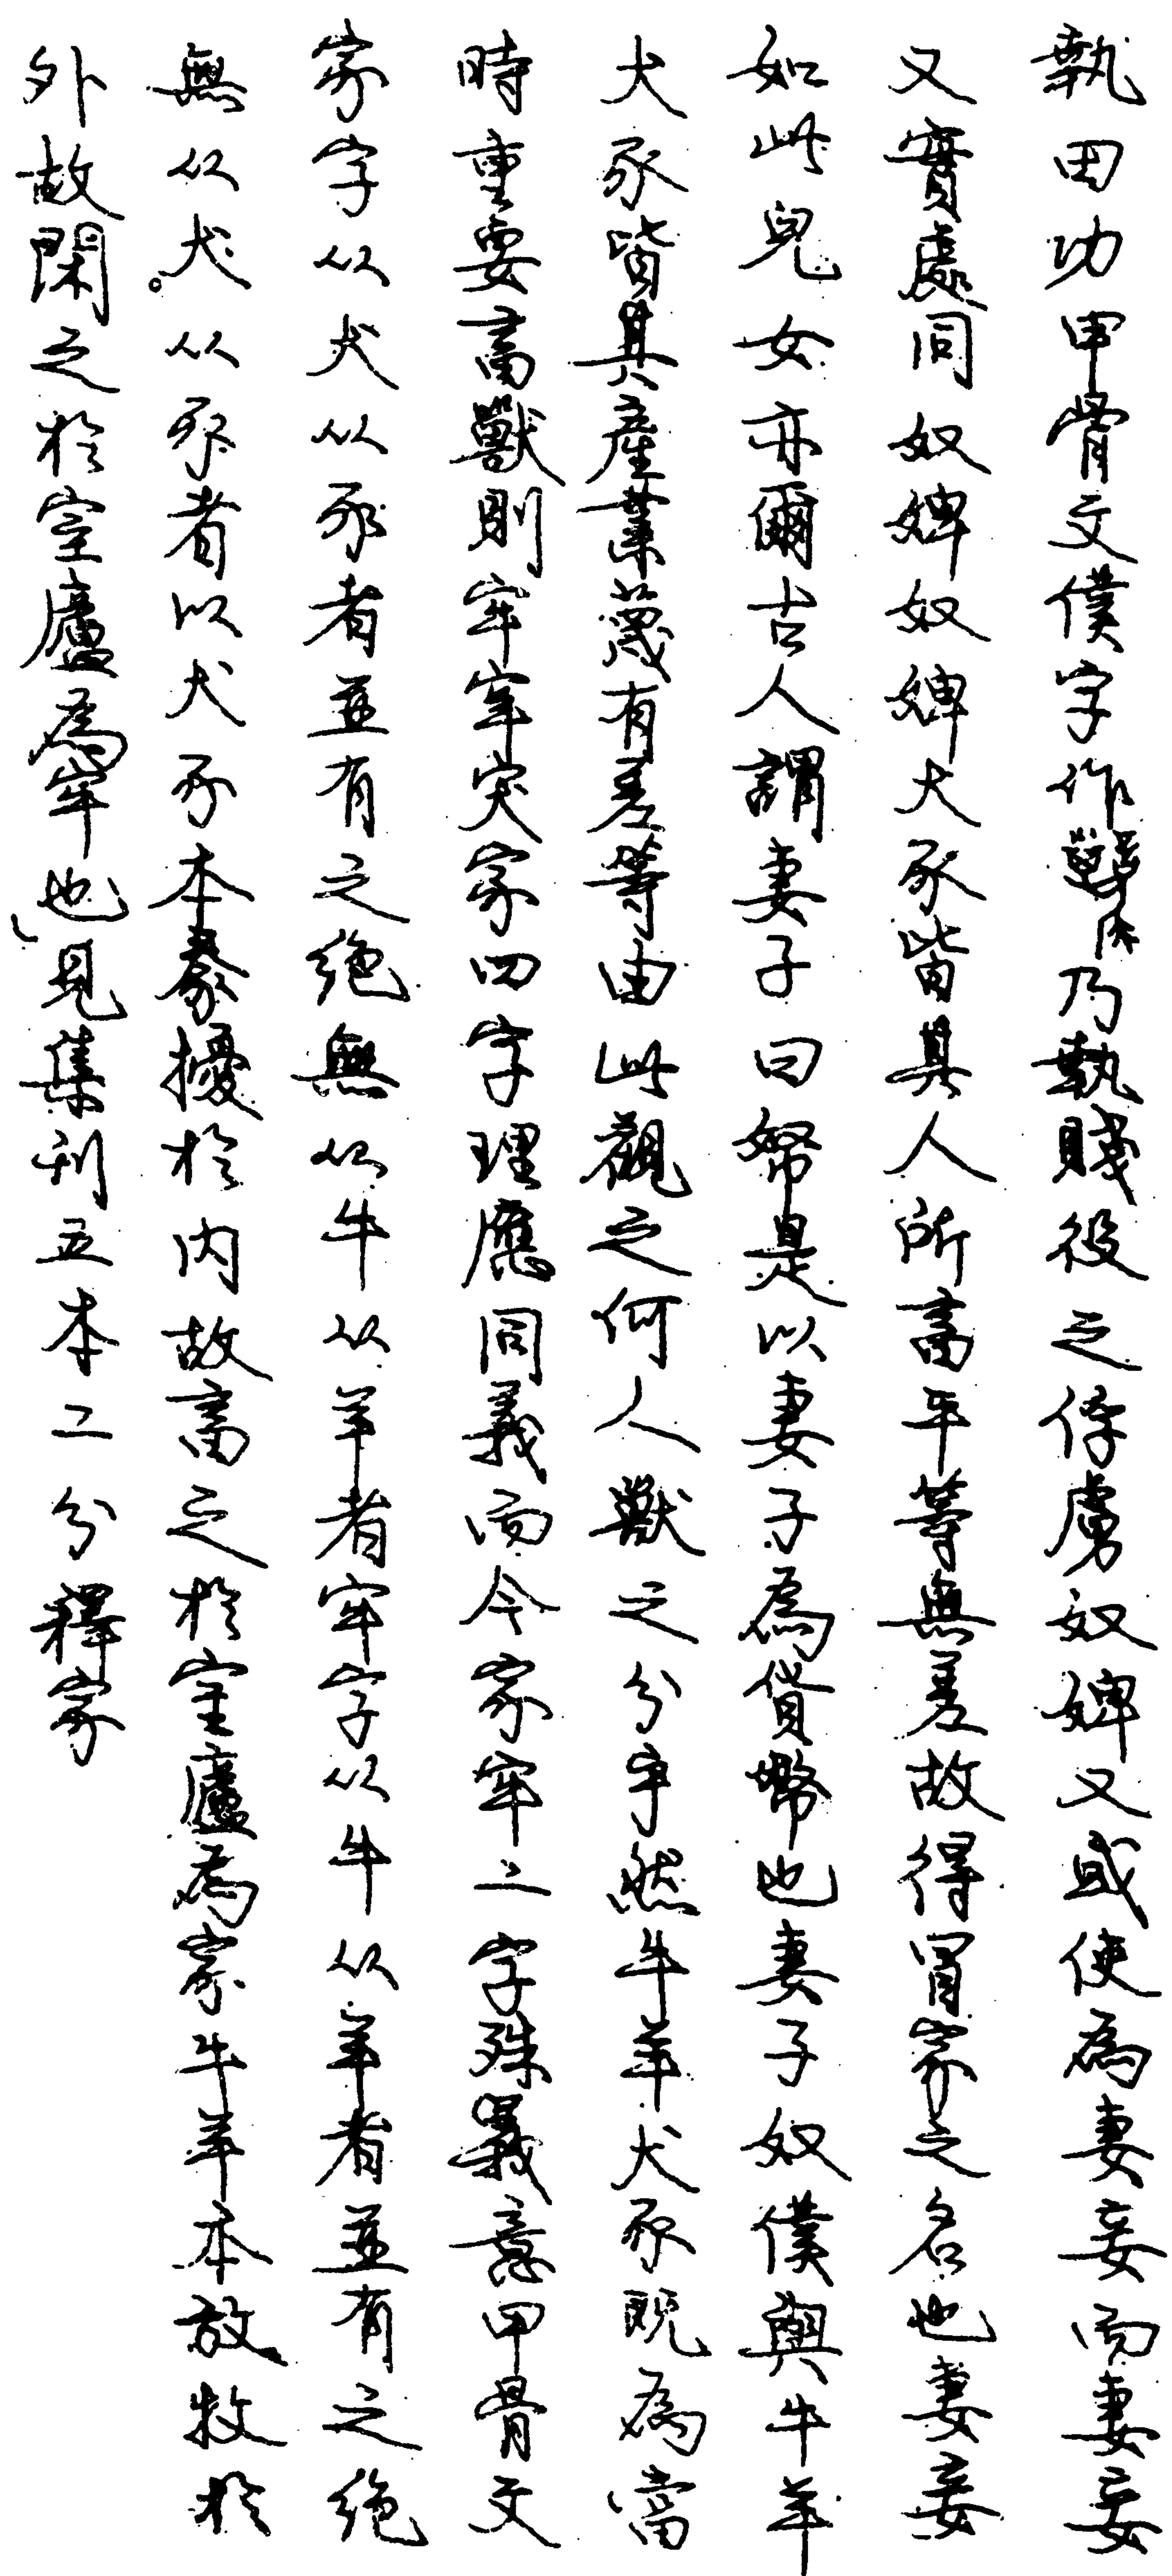 執田功甲骨文僕字作乃執賤役之俘虜奴婢又或使為妻妾而妻妾
又實處同奴婢奴婢犬豕皆其人所畜平等無差故得冒家之名也妻妾
如此兒女亦爾古人謂妻子曰帑是以妻子為貨幣也妻子奴僕與牛羊
犬豕皆其產業蔑有差等由此觀之何人獸之分乎然牛羊犬豕既為當
時重要畜獸則牢宰突家四字理應同義而今家牢二字殊義意甲骨文
家字从犬从豕者並有之絕無从牛从羊者牢字从牛从羊者並有之絕
無从犬。从豕者以犬豕本豢擾於內故畜之於室廬為家牛羊本放牧於
外故閑之於室廬為牢也見集刊五本二分釋家